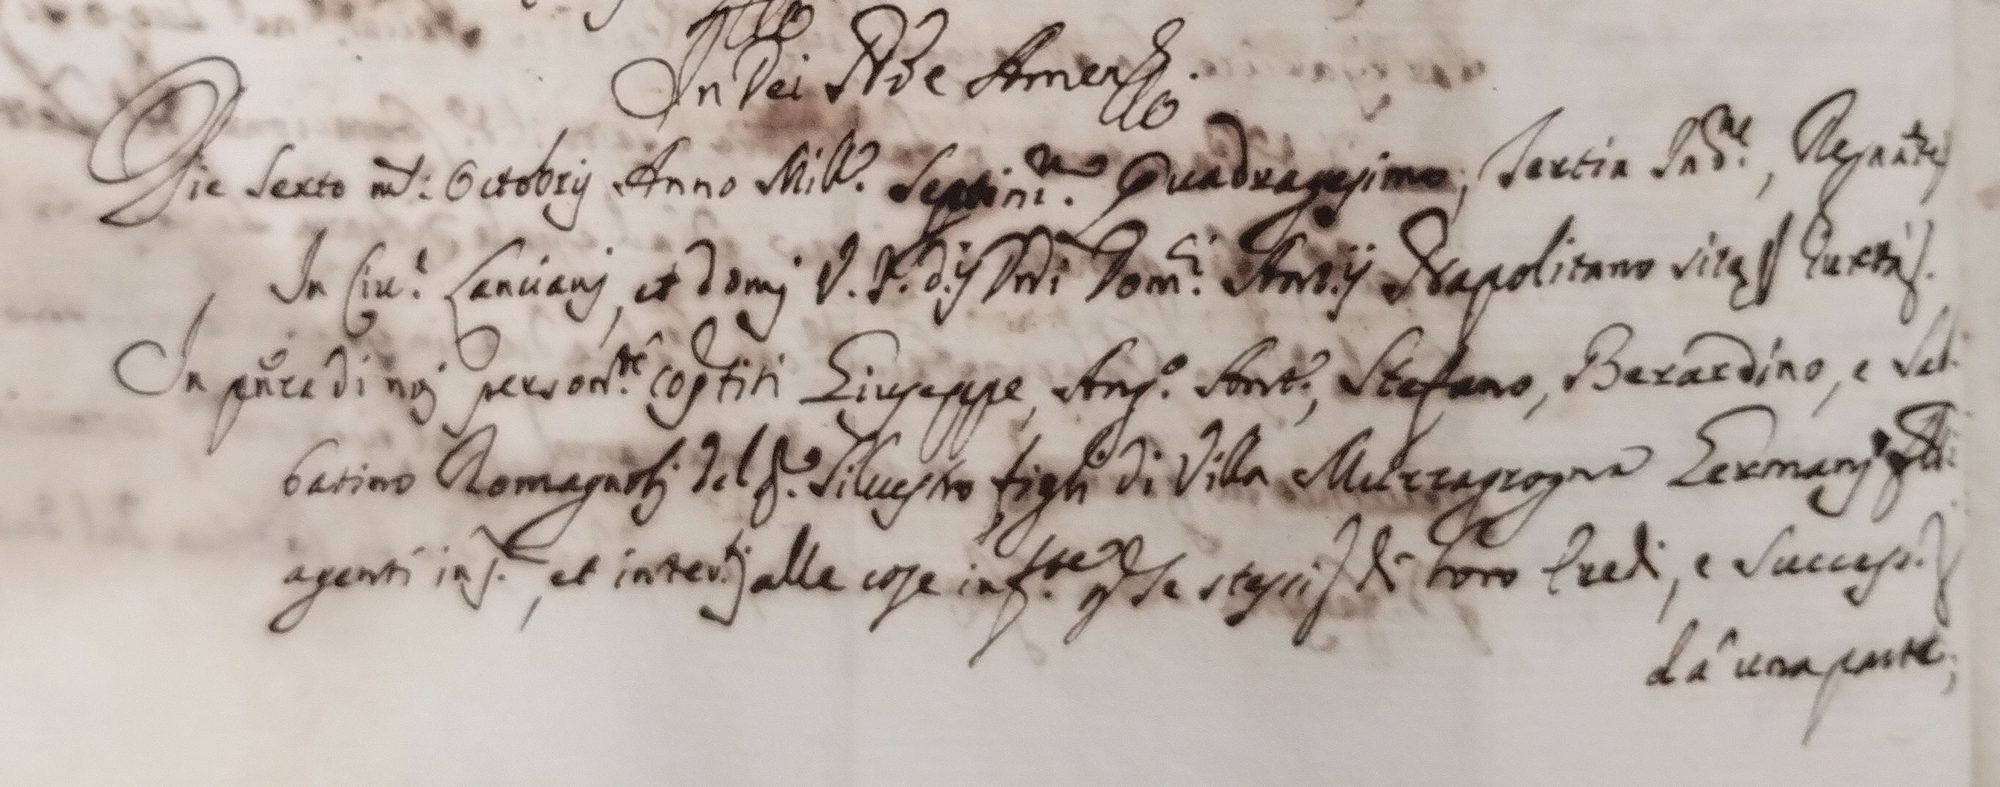 In Dei Nõe Amen
Die Sexto m.s: Octobrij Anno Mill.o Septin.mo Quadragesimo, Tertia Ind.e, Regnãte
In Civ.e Lanciani, et domj V. J. d.ij Dñi Dom.ci Ant.ij Napolitano sita Iuxta.
In pñza di noj person.te cost̃iti Giuseppe, Ang.o Ant.o, Stefano, Berardino, e Sab=
batino Romagnolj del q.o Silvestro figli di Villa Mozzagrogna Germanj
agenti ins.e, et intev.ti alle cose inf.tte p se stessi di loro Eredi, e Success.i
dà una parte;